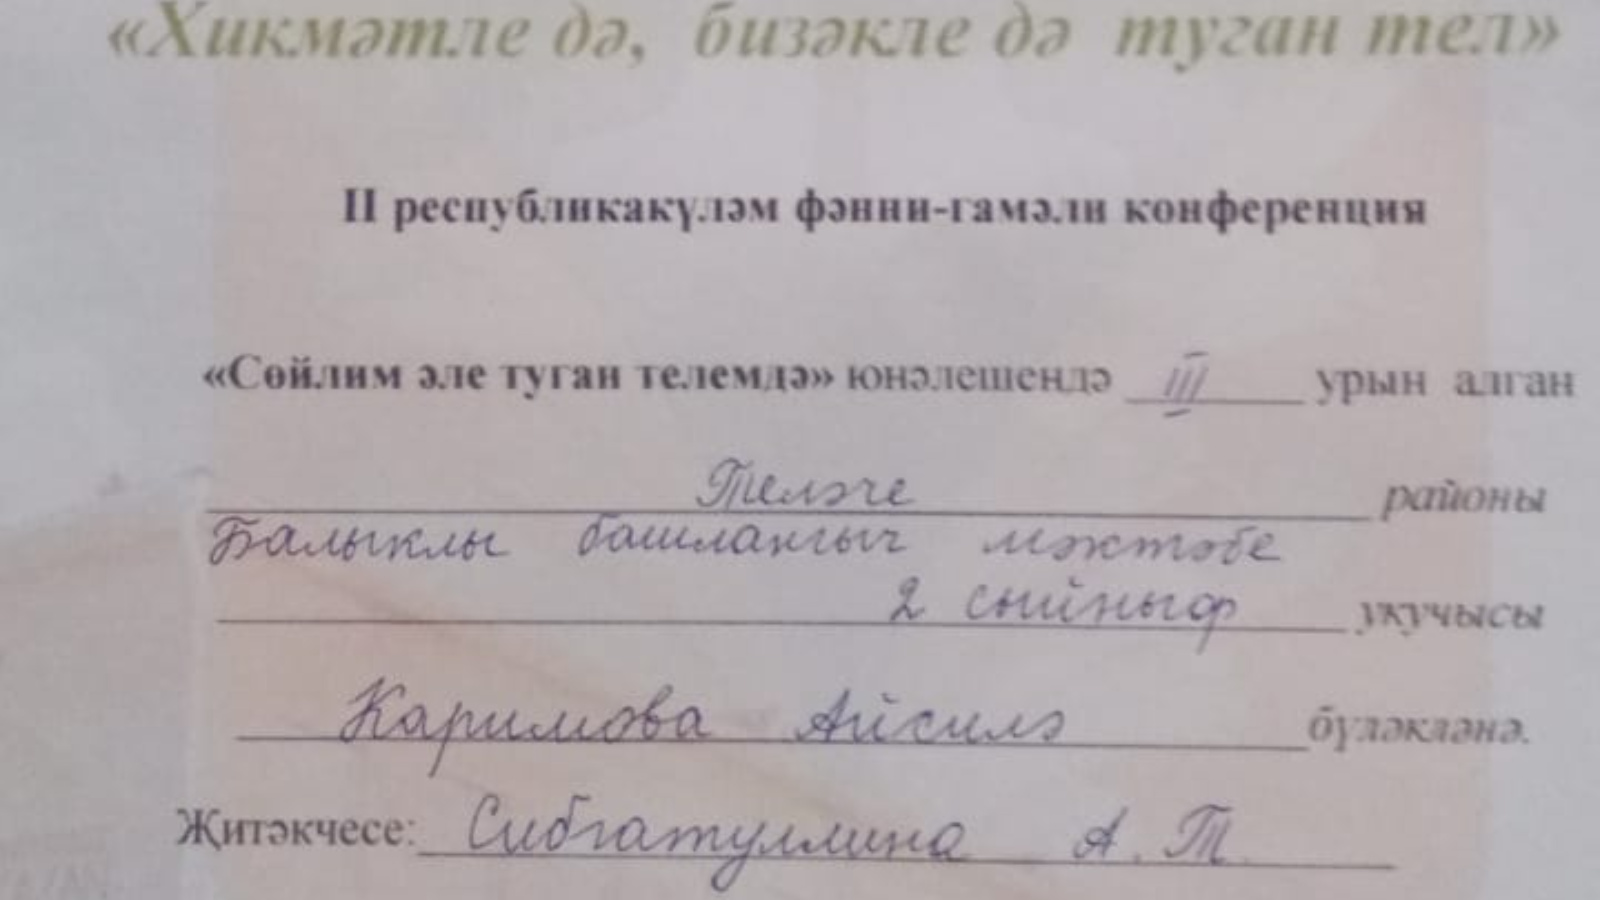 «Хикмәтле дә, бизәкле дә туган тел»
II республикакүләм фәнни-гамәли конференция
«Сөйлим әле туган телемдә» юнәлешендә III урын алган
Теләче районы
Балыклы башлангыч мәктәбе
2 сыйныф укучысы
Каримова Айсилә бүләкләнә.
Җитәкчесе: Сибгатуллина А.Т.